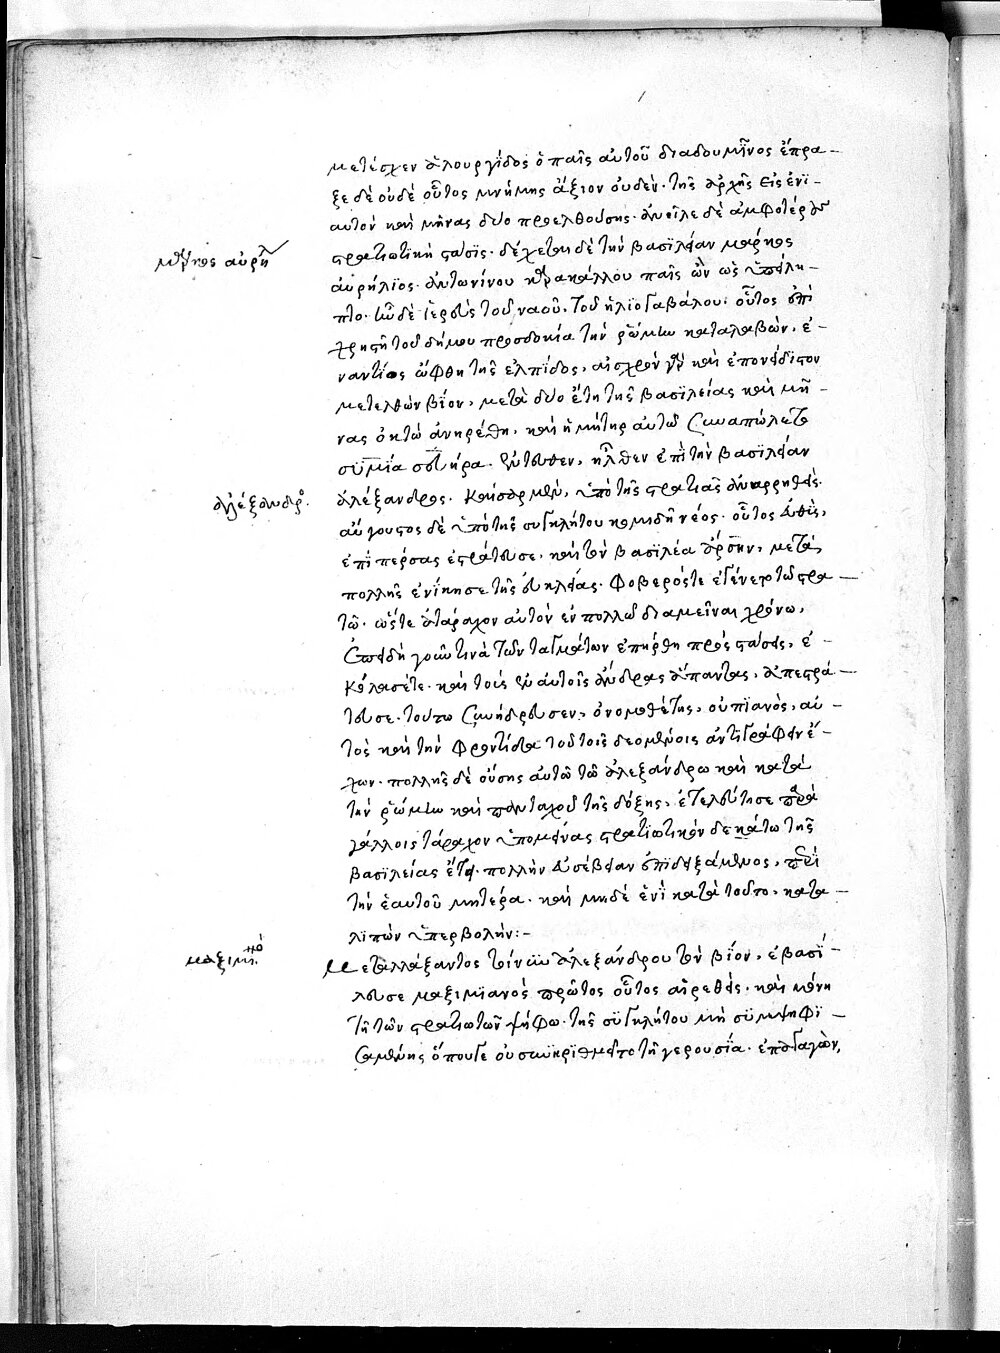 μετέσχεν ἁλουργίδος ὁ παῖς αὐτοῦ διαδουμῖνος ἔπρα–
ξε δὲ οὐδὲ οὗτος μνήμης ἄξιον οὐδέν· τῆς ἀρχῆς εἰς ἐνι–
αυτὸν καὶ μῆνας δύο προελθούσης· ἀνεῖλε δὲ ἀμφοτέρους
στρατιωτικὴ στάσις· δέχεται δὲ τὴν βασιλείαν μάρκος
μάρκος αὐρή
αὐρήλιος· ἀντωνίνου καρακάλλου παῖς ὢν ὡς ὑπείλη–
πτο· ἦν δὲ ἱερεὺς τοῦ ναοῦ, τοῦ ἡλιογαβάλου· οὗτος ἐπὶ
χρηστῇ τοῦ δήμου προσδοκία τὴν ῥώμην καταλαβὼν, ἐ–
ναντίος ὤφθη τῆς ἐλπίδος, αἰσχρὸν γὰρ καὶ ἐπονείδιστον
μετελθὼν βίον, μετὰ δύο ἔτη τῆς βασιλείας καὶ μῆ–
νας ὀκτὼ ἀνῃρέθη, καὶ ἡ μήτηρ αὐτῶ συναπώλετο
σϋμία σεβήρα· ἐντεῦθεν, ἦλθεν ἐπὶ τὴν βασιλείαν
ἀλέξανδρος
ἀλέξανδρος· καῖσαρ μὲν, ὑπὸ τῆς στρατιᾶς ἀναρρηθείς·
αὔγουστος δὲ ὑπὸ τῆς συγκλήτου κομιδῆ νέος· οὗτος εὐθὺς,
ἐπὶ πέρσας ἐστράτευσε, καὶ τὸν βασιλέα ξέρξην, μετὰ
πολλῆς ἐνίκησε τῆς εὐκλείας· φοβερός τε ἐγένετο τῶ στρα–
τῶ· ὥστε ἀτάραχον αὐτὸν ἐν πολλῶ διαμεῖναι χρόνω,
ἐπειδὴ γοῦν τινὰ τῶν ταγμάτων ἐπήρθη πρὸς στάσεις, ἐ–
κόλασέτε· καὶ τοὺς ἐν αὐτοῖς ἄνδρας ἅπαντας, ἀπεστρά–
τευσε· τούτω συνήδρευσεν, ὁ νομοθέτης, οὐπιανὸς, αὐ–
τὸς καὶ τὴν φροντίδα τοῦ τοῖς δεομένοις ἀντιγράφειν ἔ–
χων· πολλῆς δὲ οὔσης αὐτῶ τῶ ἀλεξάνδρω καὶ κατὰ
τὴν ῥώμην καὶ πανταχοῦ τῆς δόξης, ἐτελεύτησε παρὰ
γάλλοις τάραχον ὑπομείνας στρατιωτικὸν δεκάτω τῆς
βασιλείας ἔτει· πολλὴν εὐσέβειαν ἐπιδειξάμενος, περὶ
τὴν ἑαυτοῦ μητέρα· καὶ μηδὲ ἑνὶ κατὰ τοῦτο, κατα–
λιπὼν ὑπερβολήν:–
μαξιμιανό
Μεταλλάξαντος τοίνυν ἀλεξάνδρου τὸν βίον, ἐβασί–
λευσε μαξιμιανὸς πρῶτος οὗτος αἱρεθεὶς· καὶ μόνη
τῆ τῶν στρατιωτῶν ψήφω· τῆς συγκλήτου μὴ συμψηφι–
σαμένης ὅπουγε οὐ συνηρίθμητο τῆ γερουσία· ἐπαγαγὼν,